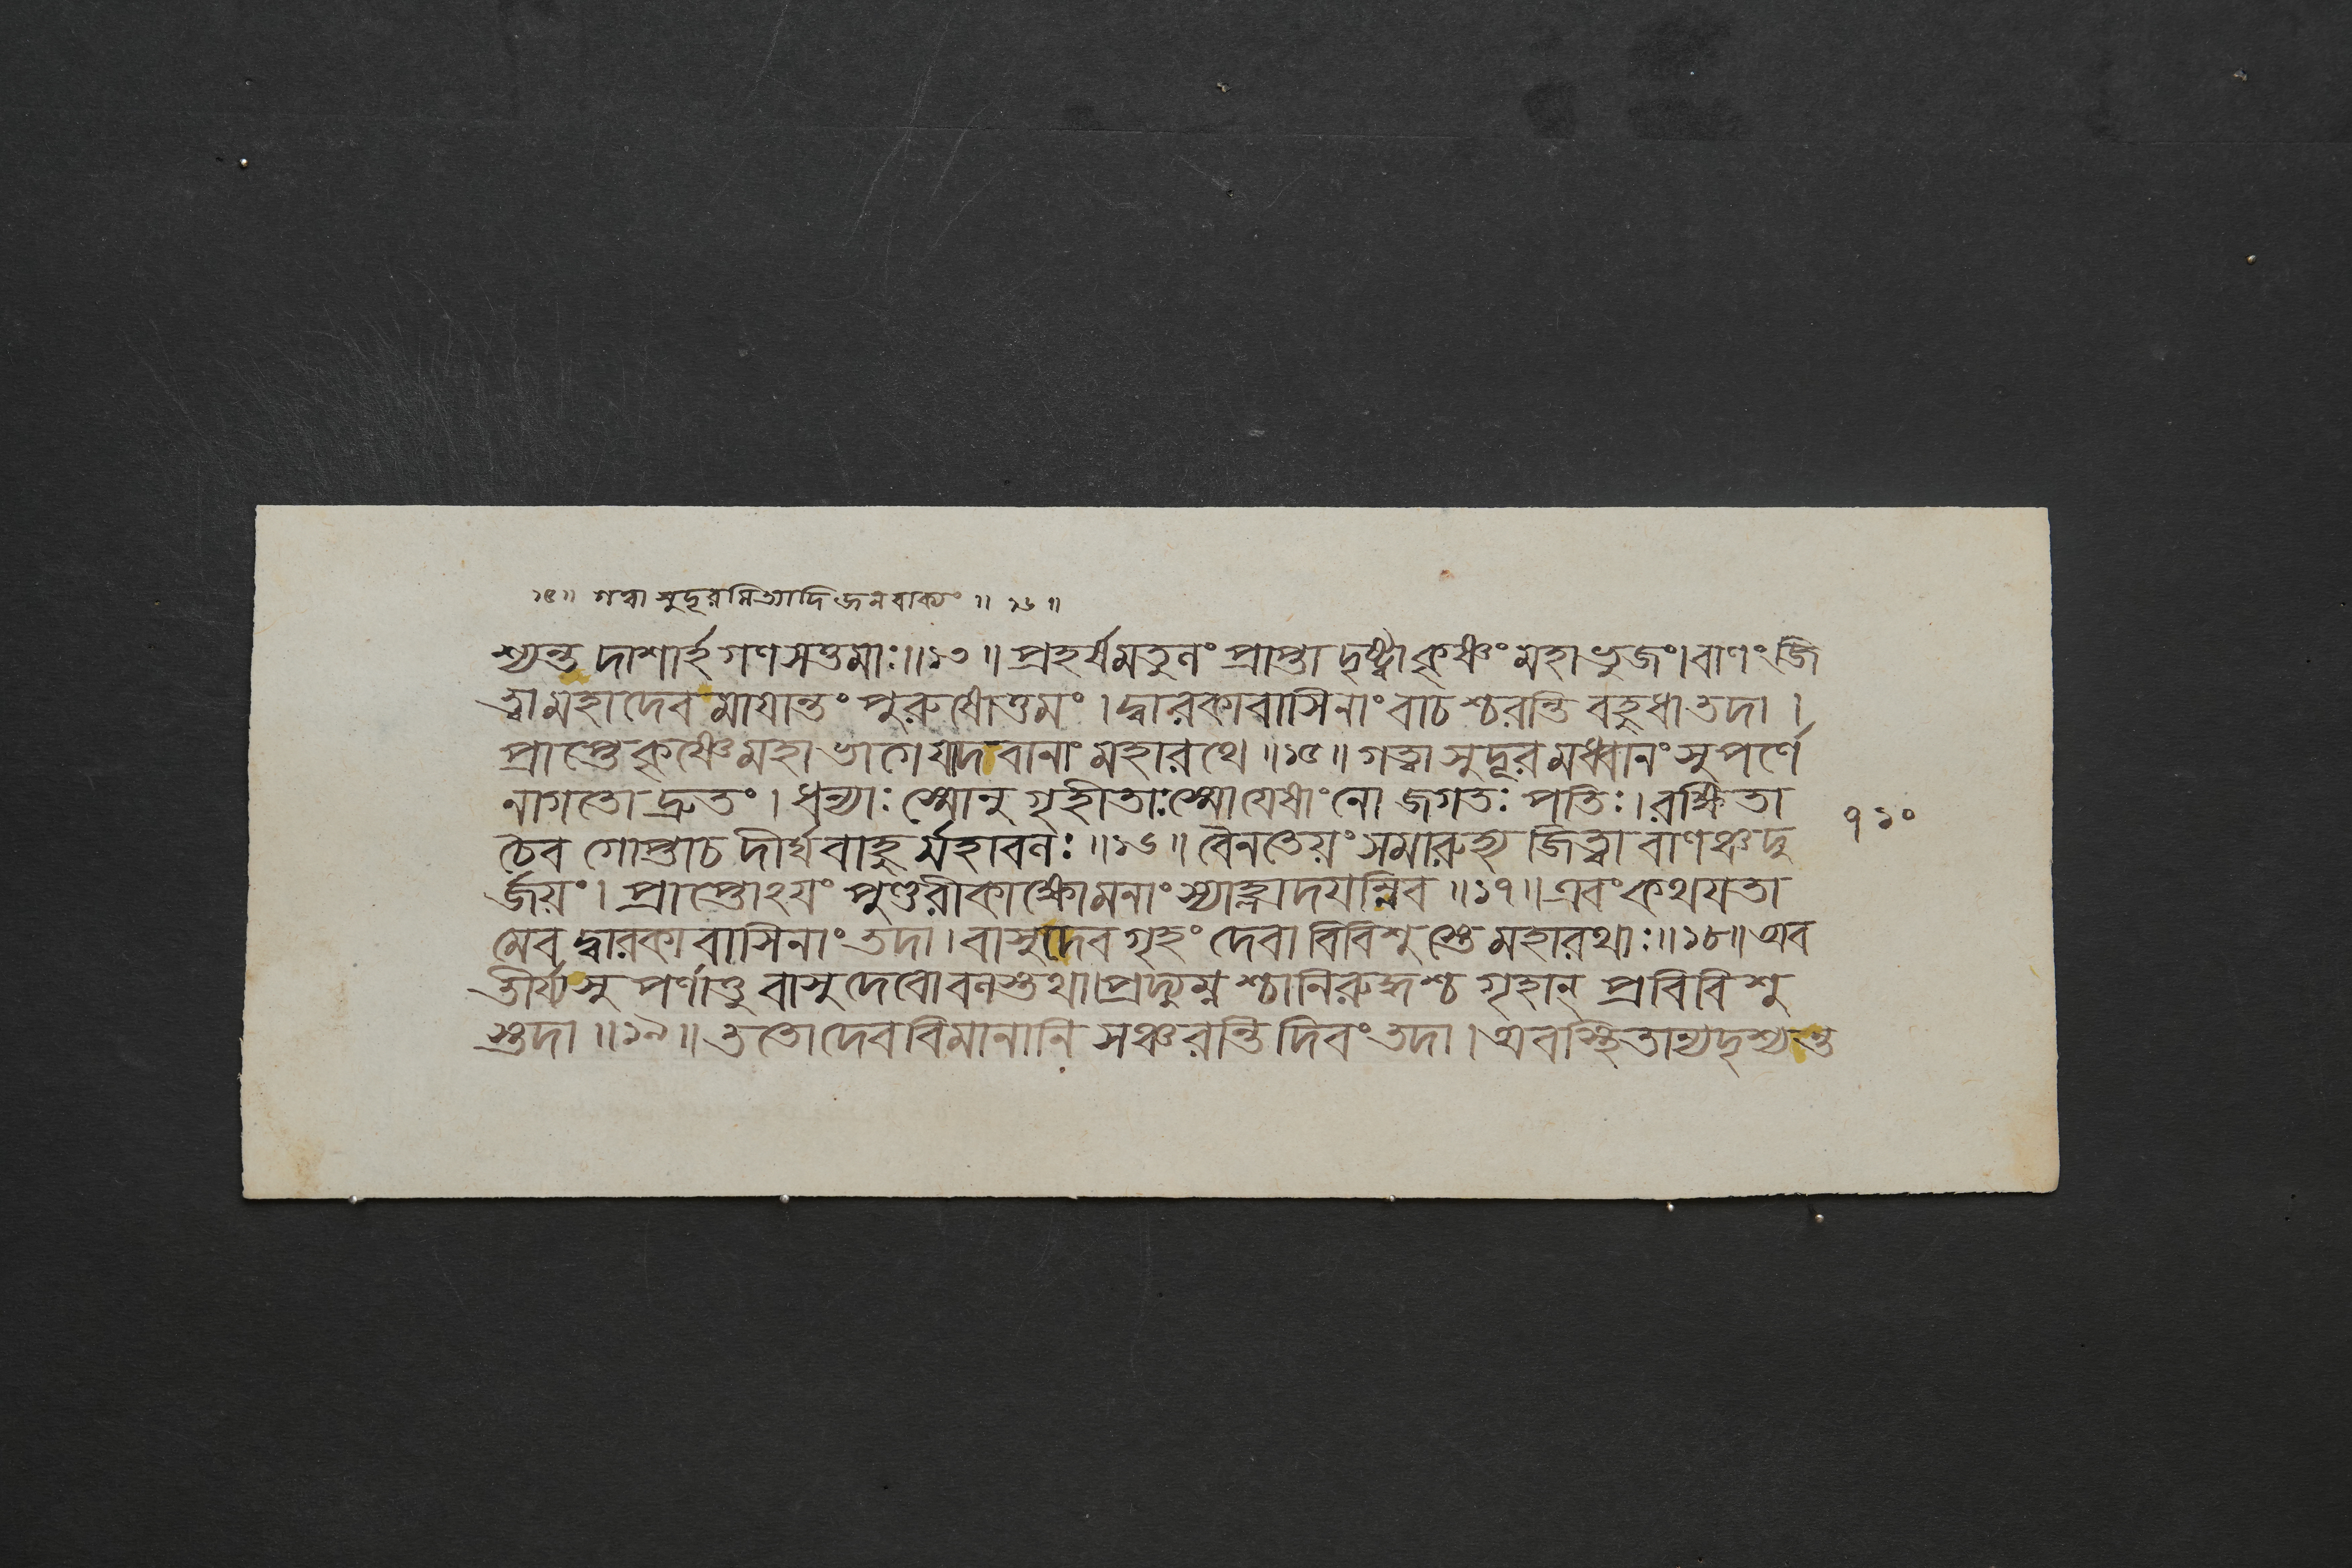 ১৫॥ গত্বা সুদূরমিত্যাদি জনবাক্যং ॥ ১৬ ॥
শ্যন্ত দাশার্হগণসত্তমাঃ॥১৩॥ প্রহর্ষমতুলং প্রাপ্তা দৃষ্ট্বা কৃষ্ণং মহাভুজং।বাণং জি
ত্বা মহাদেবমায়ান্তং পুরুষোত্তমং । দ্বারকাবাসিনাং বাচশ্চরন্তি বহুধা তদা ।
প্রাপ্তে কৃষ্ণে মহাভাগে যাদবানাং মহারথে ॥১৫॥ গত্বা সুদূরমধ্বানং সুপর্ণে
নাগতো দ্রুতং । ধন্যাঃ স্মোনুগৃহীতাঃ স্মো যেষাং নো জগতঃ পতিঃ। রক্ষিতা
চৈব গোপ্তাচ দীর্ঘবাহুর্মহাবলঃ ॥১৬॥ বৈনতেয়ং সমারুহ্য জিত্বা বাণঞ্চ দু
র্জয়ং। প্রাপ্তোঽয়ং পুণ্ডরীকাক্ষো মনাংস্যাহ্লাদয়ন্নিব ॥১৭॥ এবং কথয়তা
মেব দ্বারকাবাসিনাং তদা। বাসুদেবগৃহং দেবা বিবিশুস্তে মহারথাঃ॥১৮॥ অব
তীর্য্য সুপর্ণাত্তু বাসুদেবো বলস্তথা।প্রদ্যুম্নশ্চানিরুদ্ধশ্চ গৃহান্ প্রবিবিশু
স্তদা ॥১৯॥ ততো দেববিমানানি সঞ্চরন্তি দিবং তদা। অবস্থিতান্যদৃশ্যন্ত
৭১০